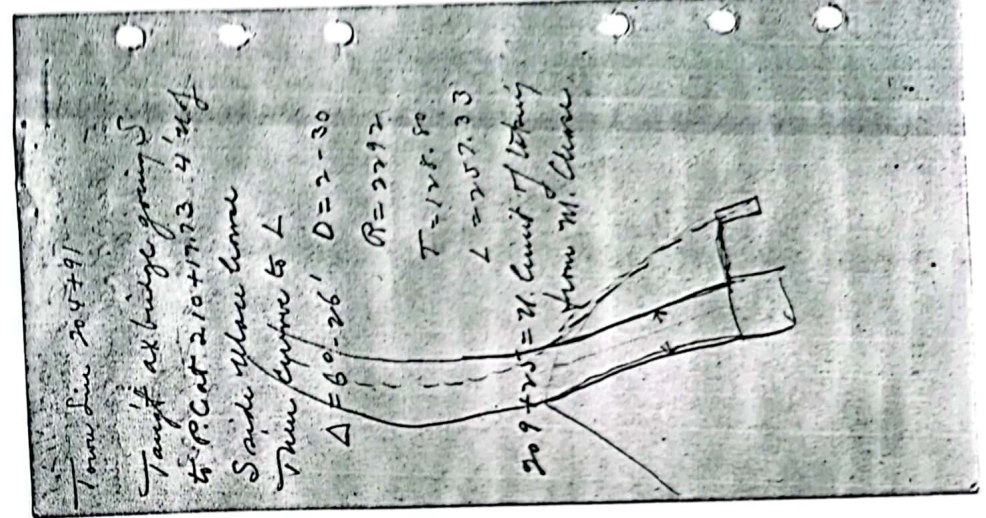 Town Line 204+91
Tang't at bridge going S
to P.C. at 210+17.73 4' N of
S side Chase home
Then Curve to L
Δ = 6°-26' D = 2-30
R = 2292
T = 128.80
L = 257.33
209+25 = N. limit of taking
from M. Chase